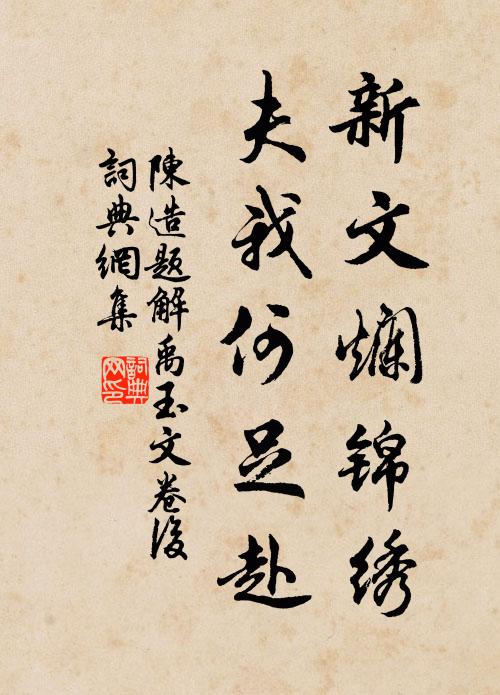 新文爛锦绣
夫我何足赴
陳造題解禹玉文卷後
詞典網集
詞典
网印